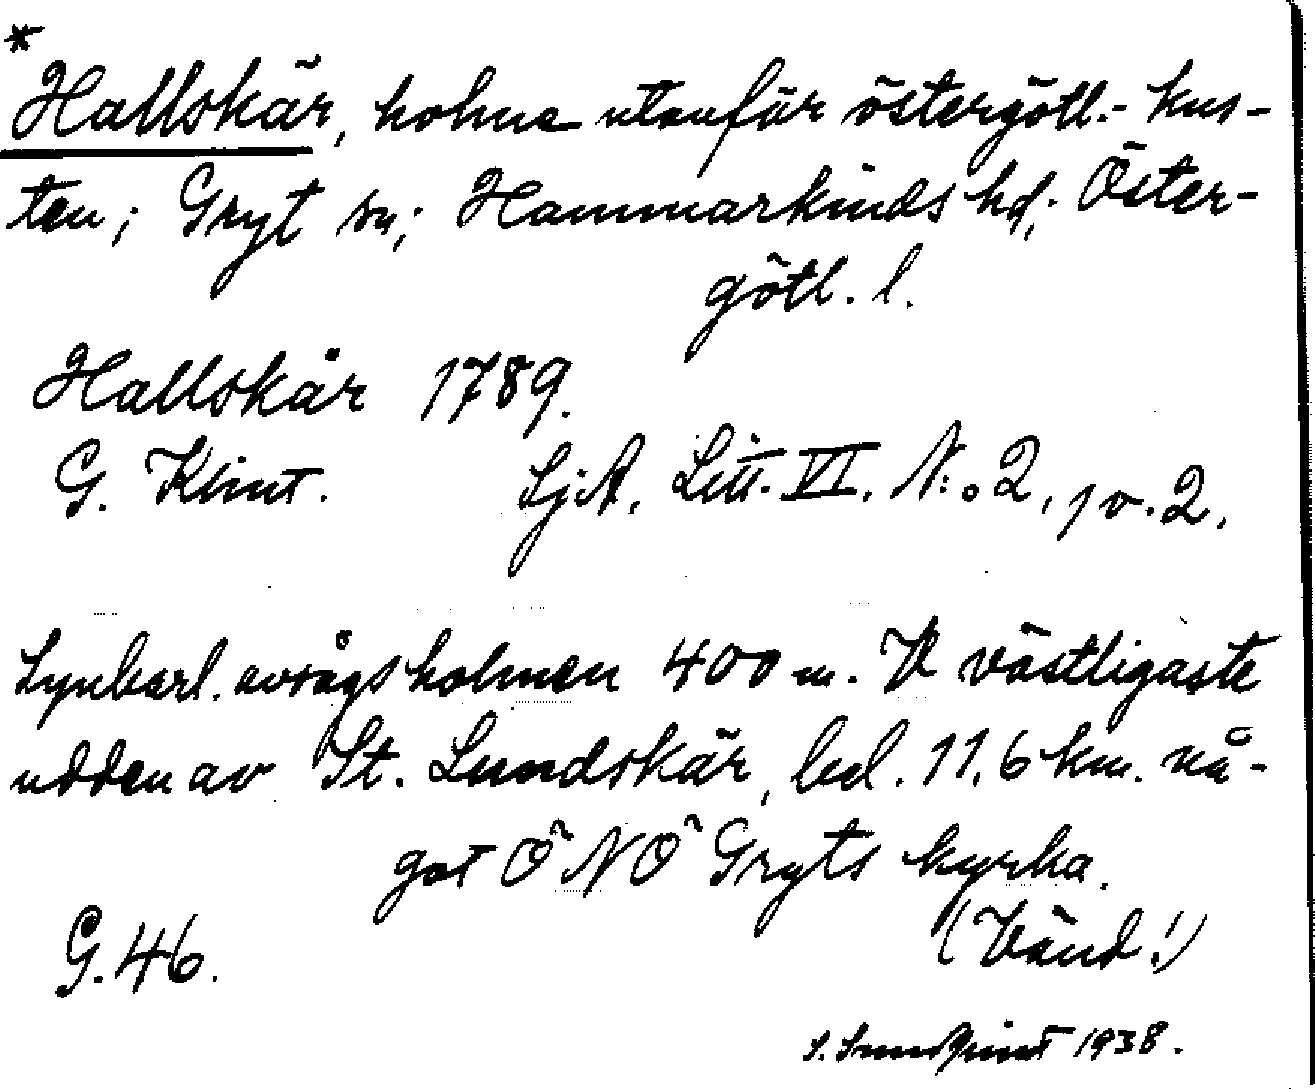 *
Hallskär, holme utanför östergötl.- kus-
ten; Gryt sn; Hammarkinds hd; Öster-
götl. l.
Hallskär 1789.
G. Klint. SjA. Litt. VI. N:o 2, p. 2.
Synbarl. avsågs holmen 400 m. V västligaste
udden av St. Lundskär, bel. 11,6 km. nå-
got Ö NÖ Gryts kyrka.
G. 46. (Vänd!)
S. 1938.